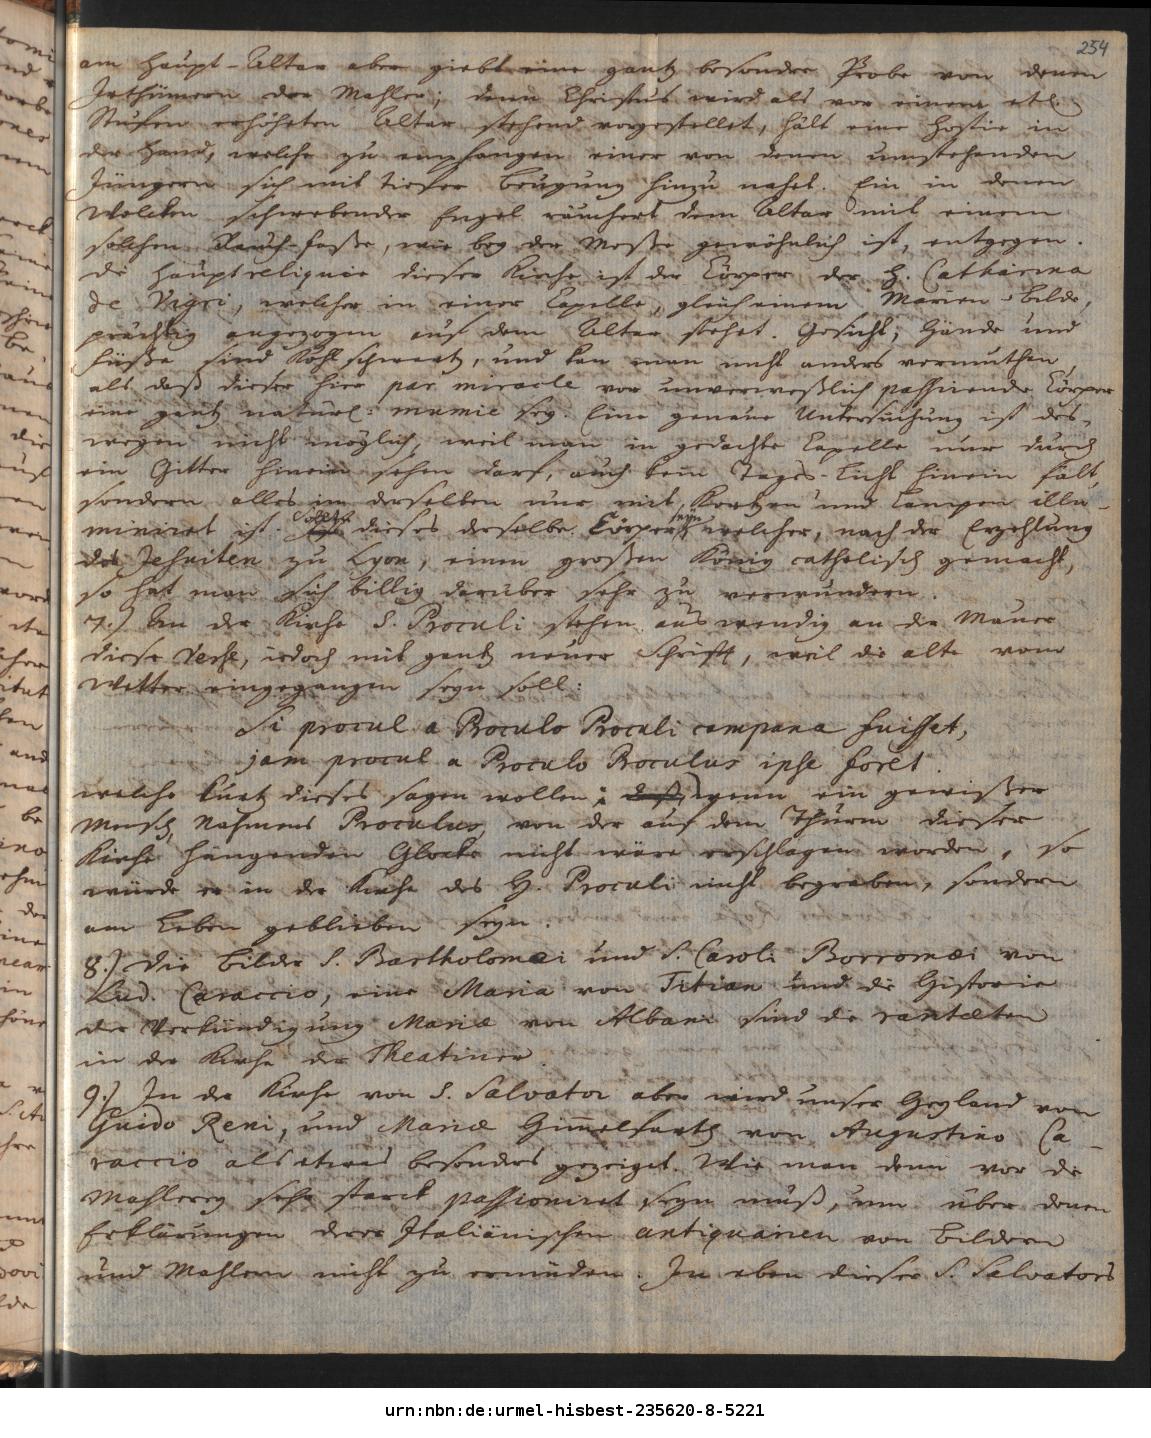 254
am Haupt-Altar aber giebt eine gantz besondere Probe von denen
Irthümern der Mahler; denn Christus wird als vor einem etl.
Stufen erhöheten Altar stehend vorgestellet, hält eine Hostie in
der Hand, welche zu empfangen einer von denen umstehenden
Jüngern sich mit tiefer beugung hinzu nahet. Ein in denen
Wolcken schwebender Engel räuchert dem Altar mit einem
solchen Rauch-fasse, wie bey der Messe gewöhnlich ist, entgegen.
die Hauptreliquie dieser Kirche ist der Cörper der H. Catharina
de Vigri, welcher in einer Capelle, gleich einem Marien-bilde,
prächtig angezogen auf dem Altar stehet. Gesicht, Hände und
Füsse sind Kohlschwartz, und kan man nicht anders vermuthen,
als daß dieser hier par miracle vor unverweßlich passirende Cörper
eine gantz naturel: mumie sey. Eine genaue Untersuchung ist des-
wegen nicht möglich, weil man in gedachte Capelle nur durch
ein Gitter hinein sehen darf, auch kein Tages-Licht hinein fält,
sondern alles in derselben nur mit Kertzen und Lampen illu-
miniret ist. Sollte dieses derselbe Cörper seyn, welcher, nach der Erzehlung
des Jesuiten zu Lyon, einen großen König catholisch gemacht,
so hat man sich billig darüber sehr zu verwundern.
7.) An der Kirche S. Proculi stehen auswendig an der Mauer
diese Verse, iedoch mit gantz neuer Schrift, weil die alte vom
Wetter eingegangen seyn soll:
Si procul a Proculo Proculi campana fuisset,
jam procul a Proculo Proculus ipse foret.
welche kurtz dieses sagen wollen: daß, wenn ein gewißer
Mensch, Nahmens Proculus, von der auf dem Thurm dieser
Kirche hängenden Glocke nicht wäre erschlagen worden, so
würde er in der Kirche des H. Proculi nicht begraben, sondern
am Leben geblieben seyn.
8.) Die Bilder S. Bartholomæi und S. Caroli Borromæi von
Lud. Caraccio, eine Maria von Titian und die Historie
der Verkündigung Mariæ von Albani sind die raresten
in der Kirche der Theatiner.
9.) In der Kirche von S. Salvator aber wird unser Heyland von
Guido Reni, und Mariæ Himmelfarth von Augustino Ca-
raccio als etwas besonders gezeiget. Wie man denn vor die
Mahlerey sehr starck passioniret seyn muß, um über denen
Erklärungen derer Italiänischen antiquarien von Bildern
und Mahlern nicht zu ermüden. In eben dieser S. Salvators
urn:nbn:de:urmel-hisbest-235620-8-5221